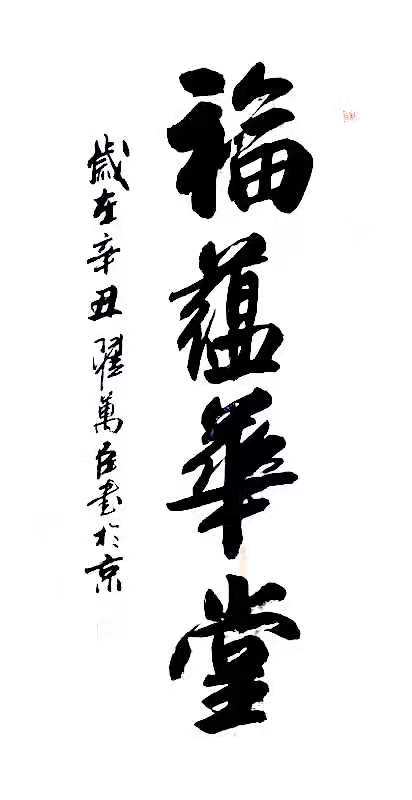 福蘊華堂
歲在辛丑翟萬臣書於京